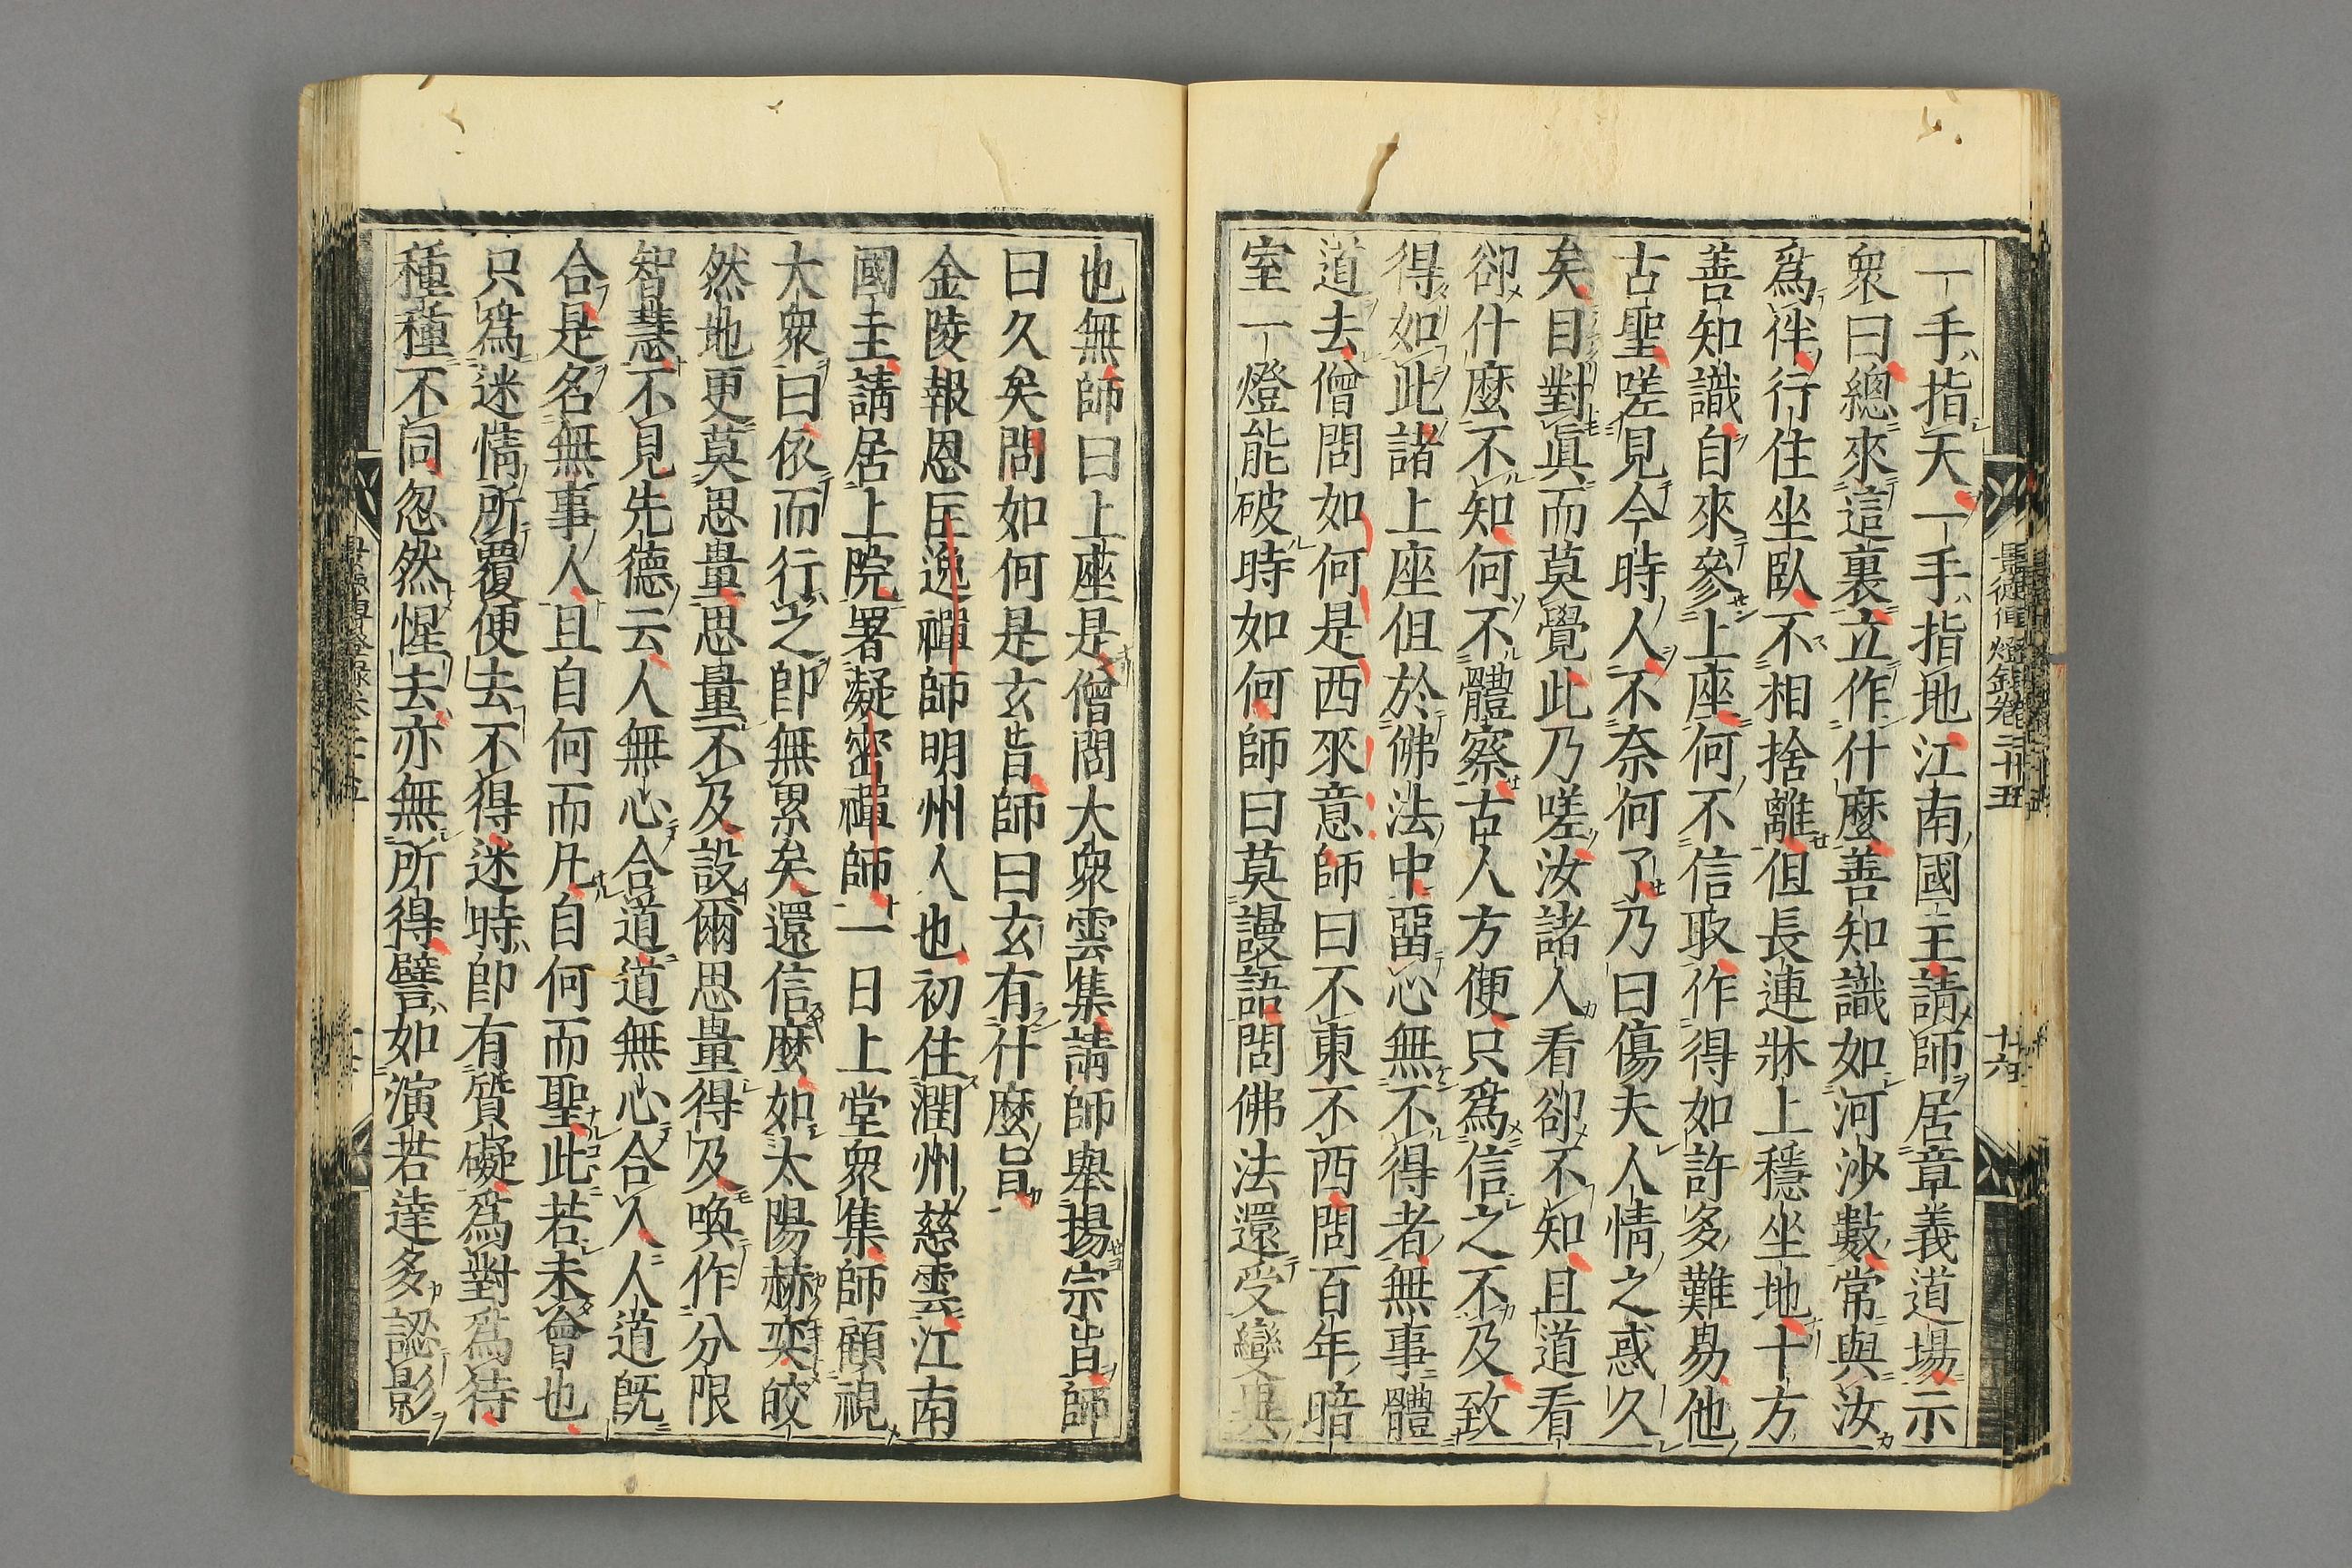 景德傳燈録卷二十五
十六
一手指天一手指地江南國主請師居章義道場示
衆曰總來這裏立作什麼善知識如河沙數常與汝
爲伴行住坐臥不相捨離但長連牀上穩坐地十方
善知識自來參上座何不信取作得如許多難易他
古聖嗟見今時人不奈何了乃曰傷夫人情之惑久
矣目對眞而莫覺此乃嗟汝諸人看卻不知且道看
卻什麼不知何不體察古人方便只爲信之不及致
得如此諸上座但於佛法中畱心無不得者無事體
道去僧問如何是西來意師曰不東不西問百年暗
室一燈能破時如何師曰莫謾語問佛法還受變異
也無師曰上座是僧問大衆雲集請師舉揚宗旨師
曰久矣問如何是玄旨師曰玄有什麼旨
金陵報恩匡逸禪師明州人也初住潤州慈雲江南
國主請居上院署凝密禪師一日上堂衆集師顧視
大衆曰依而行之卽無累矣還信麼如太陽赫奕皎
然地更莫思量思量不及設爾思量得及喚作分限
智慧不見先德云人無心合道道無心合人人道既
合是名無事人且自何而凡自何而聖此若未會也
只爲迷情所覆便去不得迷時卽有質礙爲對爲待
種種不同忽然惺去亦無所得譬如演若達多認影